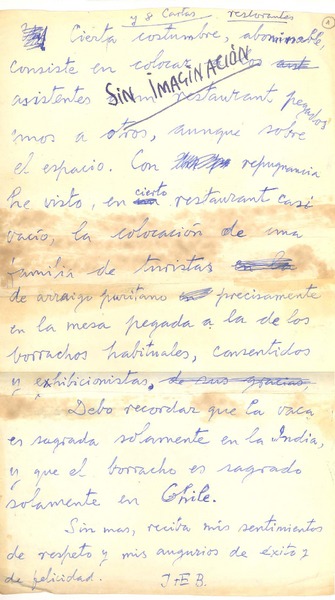 y 8 Cartas restorantes
Cierta costumbre, abominable,
consiste en colocar
SIN IMAGINACIÓN
asistentes restaurant pegados
unos a otros, aunque sobre
el espacio. Con repugnancia
he visto, en cierto restaurant casi
vacío, la colocación de una
familia de turistas
de arraigo puritano precisamente
en la mesa pegada a la de los
borrachos habituales, consentidos
y exhibicionistas, de sus gracias,
Debo recordar que la vaca
es sagrada solamente en la India,
y que el borracho es sagrado
solamente en Chile.
Sin mas, reciba mis sentimientos
de respeto y mis augurios de éxito y
de felicidad. J.E.B.